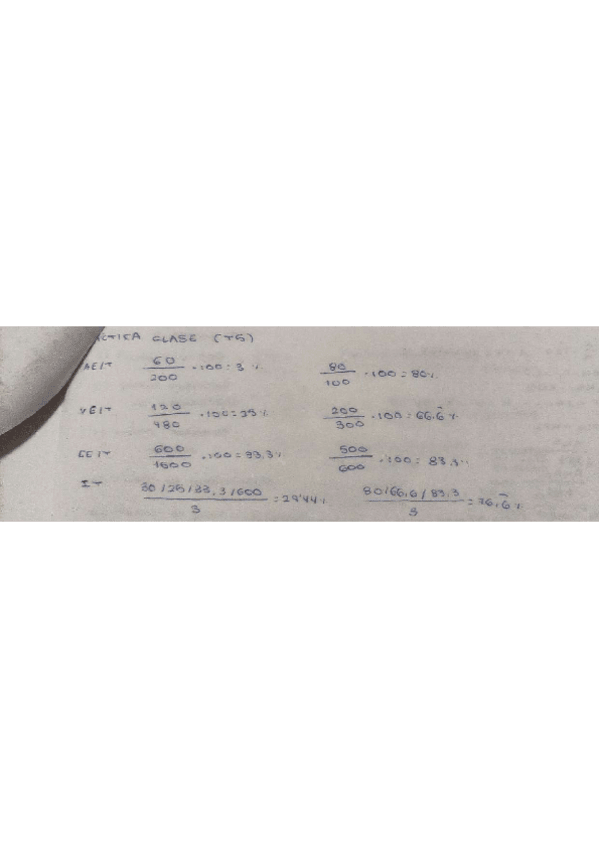 CTICA CLASE (T5)
AEIT 60/200 · 100 = 3 % 80/100 · 100 = 80%
VEIT 120/480 · 100 = 25 % 200/300 · 100 = 66.6 %
EEIT 600/1800 · 100 = 33,3 % 500/600 · 100 = 83,3 %
IT 30/25/33,3/600 / 3 = 29'44 % 80/66,6/83,3 / 3 = 76,6 %